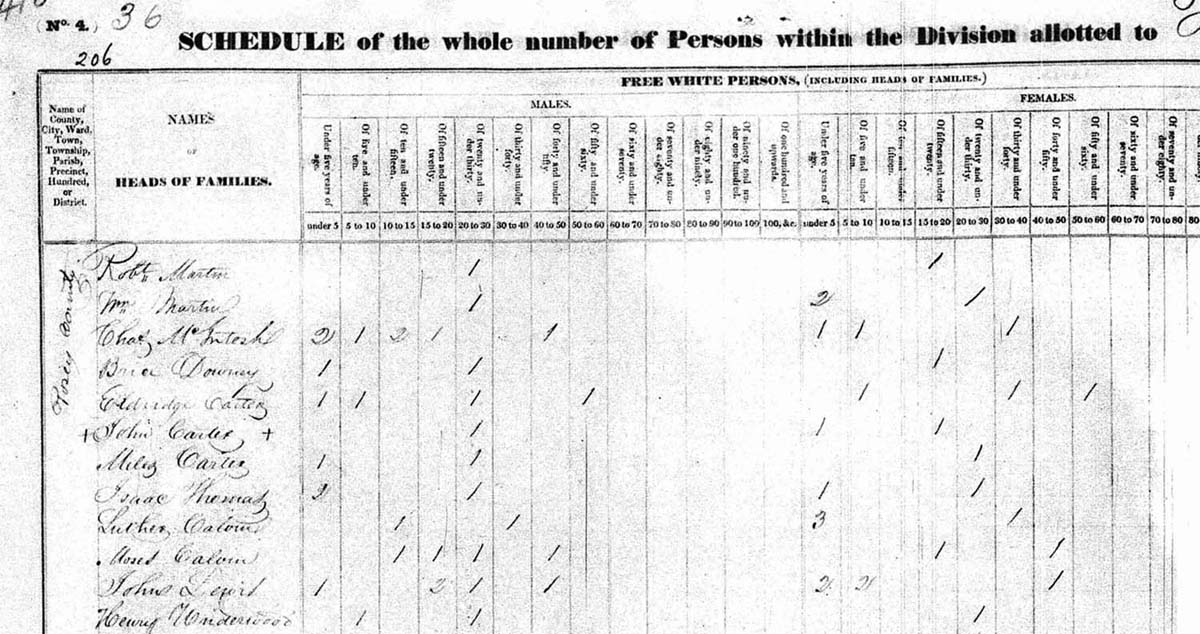 (No. 4.) 36
206
SCHEDULE of the whole number of Persons within the Division allotted to
FREE WHITE PERSONS, (INCLUDING HEADS OF FAMILIES.)
MALES. FEMALES.
Name of County, City, Ward, Town, Township, Parish, Precinct, Hundred, or District.
NAMES
OF
HEADS OF FAMILIES.
Under five years of age. Of five and under ten. Of ten and under fifteen. Of fifteen and under twenty. Of twenty and under thirty. Of thirty and under forty. Of forty and under fifty. Of fifty and under sixty. Of sixty and under seventy. Of seventy and under eighty. Of eighty and under ninety. Of ninety and under one hundred. Of one hundred and upwards. Under five years of age. Of five and under ten. Of ten and under fifteen. Of fifteen and under twenty. Of twenty and under thirty. Of thirty and under forty. Of forty and under fifty. Of fifty and under sixty. Of sixty and under seventy. Of seventy and under eighty.
under 5 5 to 10 10 to 15 15 to 20 20 to 30 30 to 40 40 to 50 50 to 60 60 to 70 70 to 80 80 to 90 90 to 100 100, &c. under 5 5 to 10 10 to 15 15 to 20 20 to 30 30 to 40 40 to 50 50 to 60 60 to 70 70 to 80 80
Posey County
Robt Martin 1 1
Wm Martin 1 2 1
Chas McIntosh 2 1 2 1 1 1 1 1
Brice Downey 1 1 1
Eldridge Carter 1 1 1 1 1 1 1
+ John Carter + 1 1 1
Miles Carter 1 1 1
Isaac Thomas 2 1 1 1
Luther Calvin 1 1 3 1
Moses Calvin 1 1 1 1 1 1
John Lewis 1 2 1 1 2 2 1
Henry Underwood 1 1 1